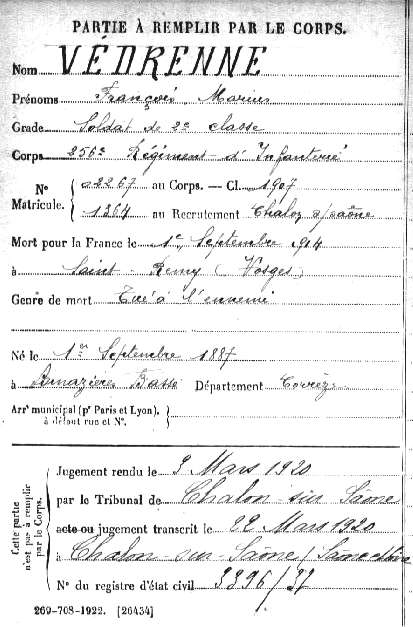 PARTIE À REMPLIR PAR LE CORPS.
Nom VÉDRENNE
Prénoms François Marius
Grade Soldat de 2e classe
Corps 256e Régiment d'Infanterie
N° Matricule. { 02267 au Corps. — Cl. 1907
1364 au Recrutement Chalon s/saône
Mort pour la France le 1er Septembre 1914
à Saint-Rémy (Vosges)
Genre de mort Tué à l'ennemi
Né le 1er Septembre 1887
à Basse Département Corrèze
Arrt municipal (pr Paris et Lyon),
à défaut rue et N°.
Cette partie n'est pas à remplir par le Corps.
Jugement rendu le 9 Mars 1920
par le Tribunal de Chalon sur Saône
acte ou jugement transcrit le 22 Mars 1920
à Chalon-sur-Saône (Saône et Loire
N° du registre d'état civil 3396/37
269-708-1922. [26434]